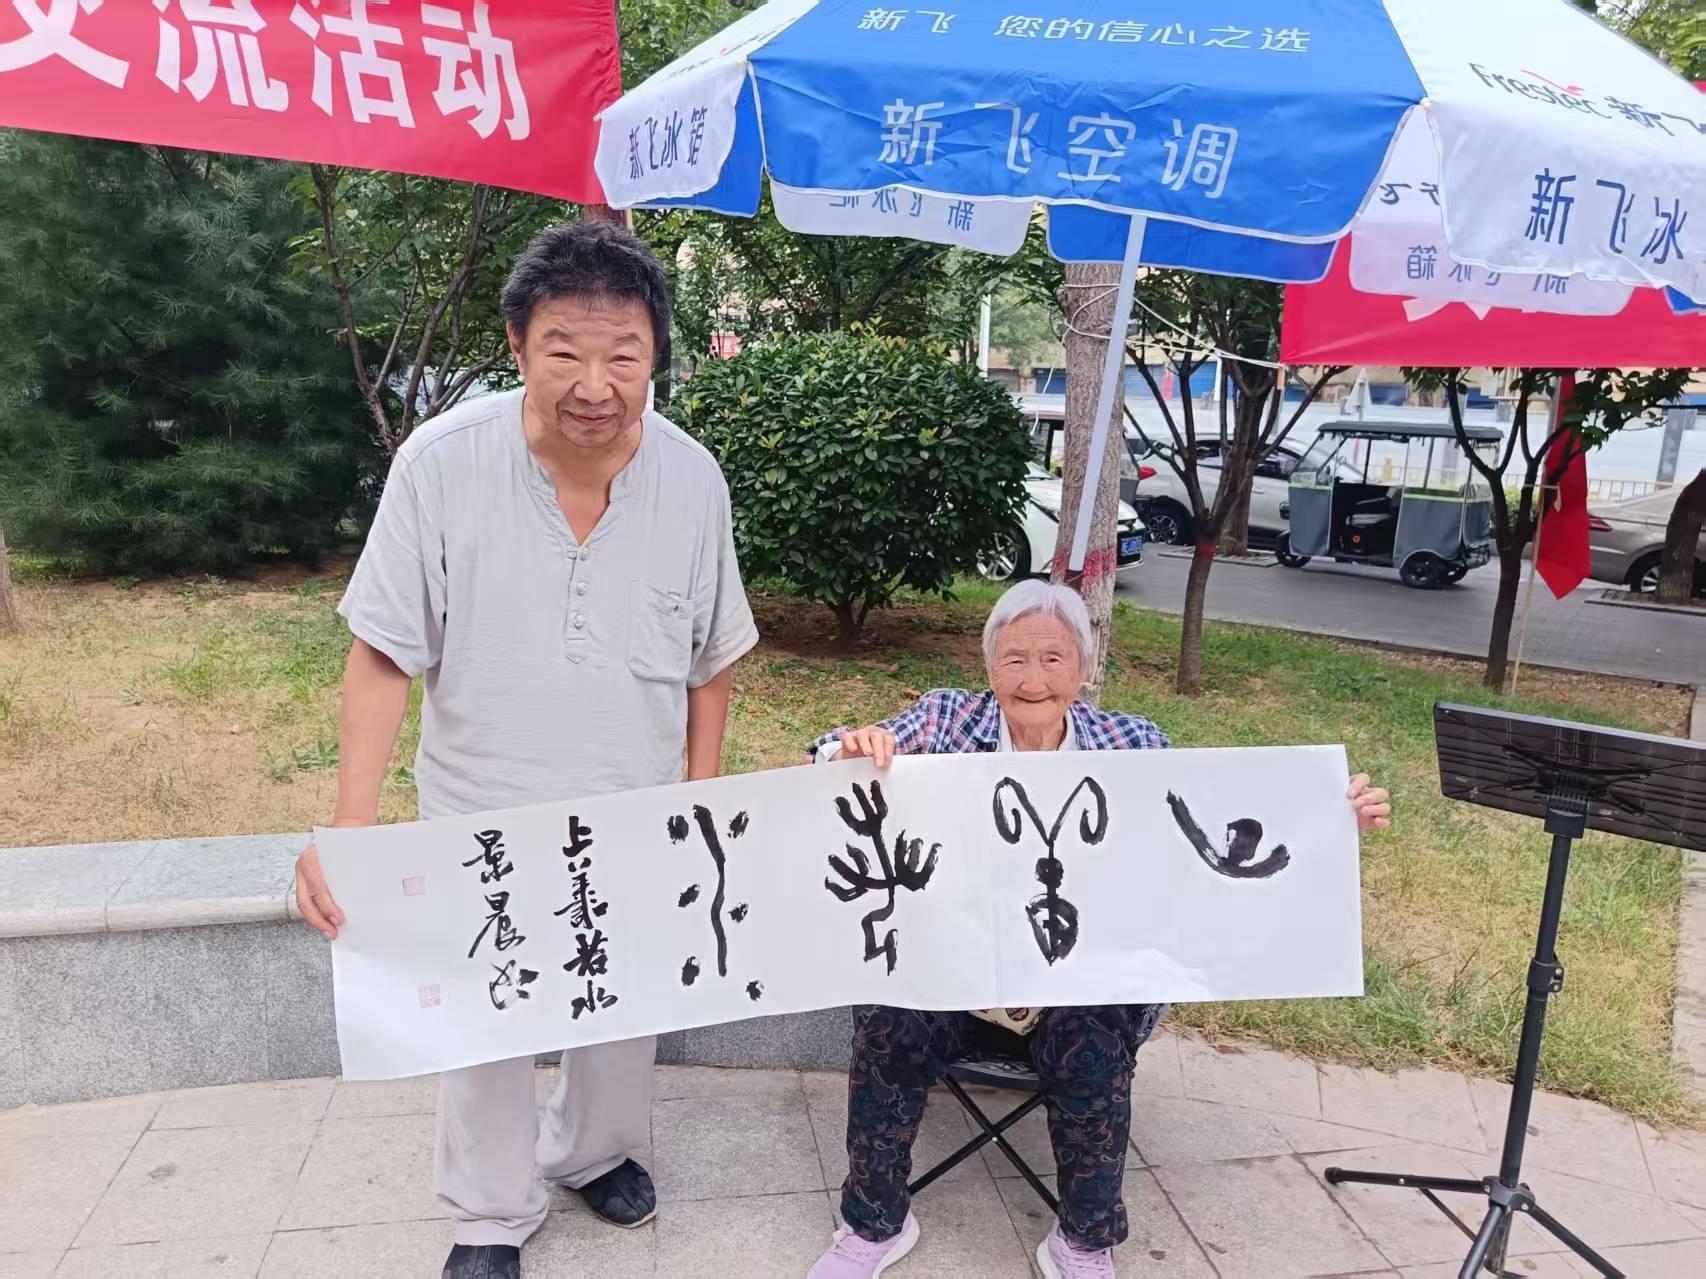 交流活动
新飞 您的信心之选
新飞空调
新飞冰箱
Frestec 新飞
新飞冰
上善若水
上善若水
景晨